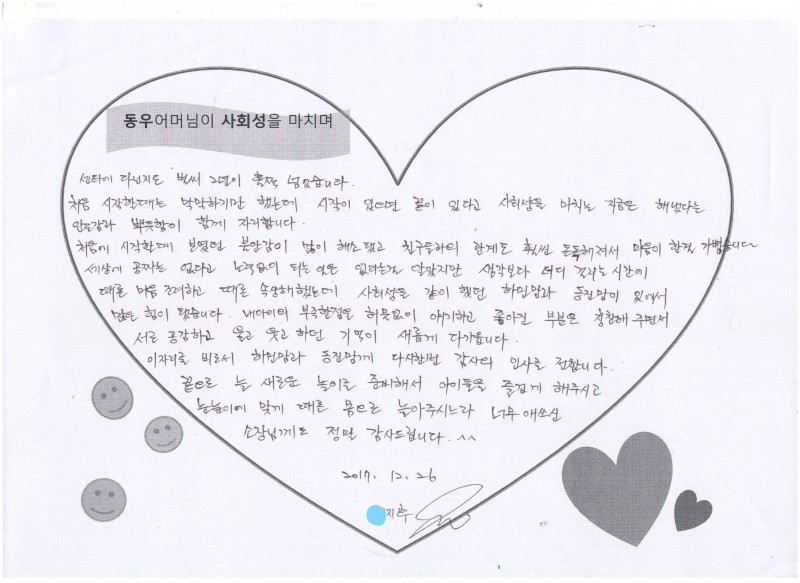 동우어머님이 사회성을 마치며
센타에 다닌지도 벌써 2년이 훌쩍 넘었습니다.
처음 시작할때는 막막하기만 했는데 시작이 있으면 끝이 있다고 사회성을 마치는 지금은 해냈다는
안도감과 뿌듯함이 함께 자리합니다.
처음에 시작할때 보였던 불안감이 많이 해소됐고 친구들과의 관계도 훨씬 돈독해져서 마음이 한결 가볍습니다
세상에 공짜는 없다고 노력없이 되는 일은 없다는걸 알았지만 생각보다 더디 걸리는 시간에
때론 마음 조려하고 때론 속상해했는데 사회성을 같이 했던 하민맘과 동진맘이 있어서
많은 힘이 됐습니다. 내아이의 부족한점은 허물없이 얘기하고 좋아진 부분은 칭찬해 주면서
서로 공감하고 울고 웃고 하던 기억이 새롭게 다가옵니다.
이자리를 비로서 하민맘과 동진맘께 다시한번 감사의 인사를 전합니다.
끝으로 늘 새로운 놀이로 준비해서 아이들을 즐겁게 해주시고
눈높이에 맞게 때론 몸으로 놀아주시느라 너무 애쓰신
소장님께도 정말 감사드립니다. ^^
2017. 12. 26
지후